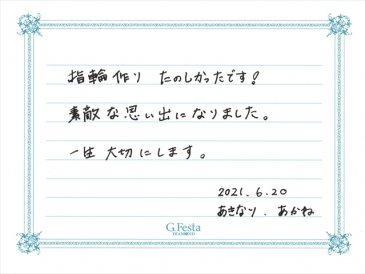 指輪作り たのしかったです!
素敵な思い出になりました。
一生大切にします。
2021.6.20
あきなり. あかね
G.Festa